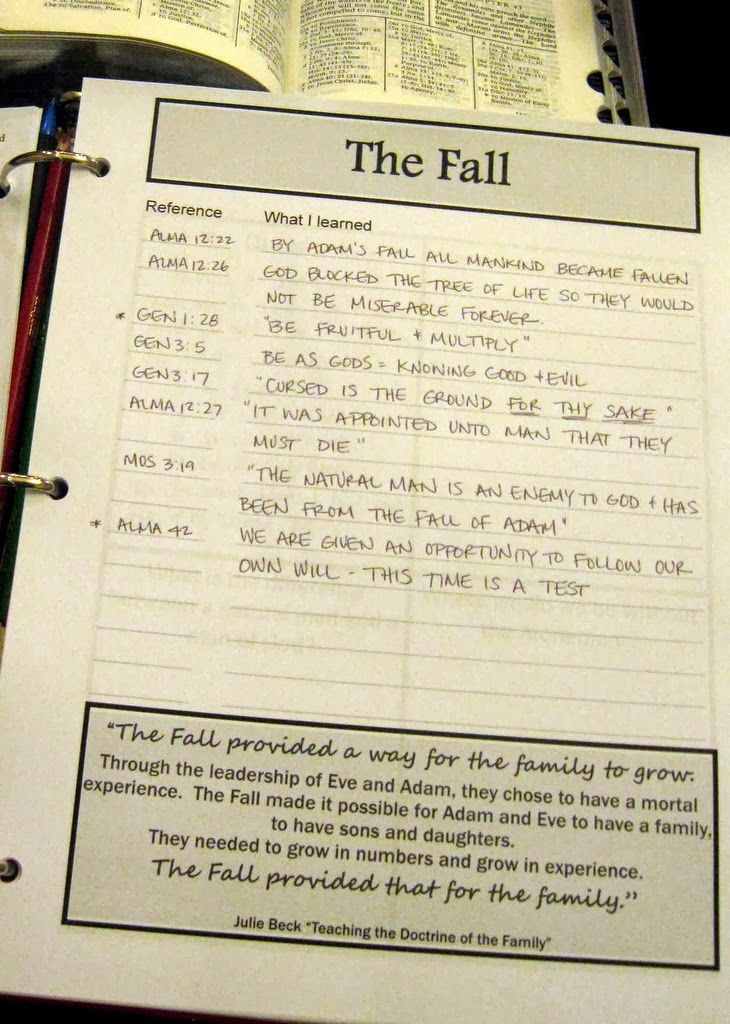 The Fall
Reference What I learned
ALMA 12:22 BY ADAM'S FALL ALL MANKIND BECAME FALLEN
ALMA 12:26 GOD BLOCKED THE TREE OF LIFE SO THEY WOULD
NOT BE MISERABLE FOREVER.
* GEN 1:28 "BE FRUITFUL + MULTIPLY"
GEN 3:5 BE AS GODS = KNONING GOOD + EVIL
GEN 3:17 "CURSED IS THE GROUND FOR THY SAKE"
ALMA 12:27 "IT WAS APPOINTED UNTO MAN THAT THEY
MUST DIE"
MOS 3:19 "THE NATURAL MAN IS AN ENEMY TO GOD + HAS
BEEN FROM THE FALL OF ADAM"
* ALMA 42 WE ARE GIVEN AN OPPORTUNITY TO FOLLOW OUR
OWN WILL - THIS TIME IS A TEST
"The Fall provided a way for the family to grow.
Through the leadership of Eve and Adam, they chose to have a mortal
experience. The Fall made it possible for Adam and Eve to have a family,
to have sons and daughters.
They needed to grow in numbers and grow in experience.
The Fall provided that for the family."
Julie Beck "Teaching the Doctrine of the Family"